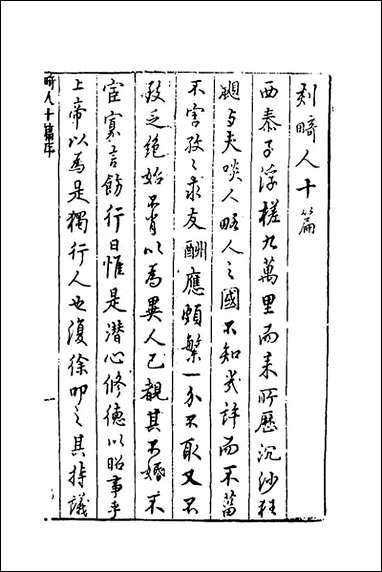 刻畸人十篇
西泰子浮槎九萬里而來所歷沉沙狂
颶与夫啖人畧人之國不知幾許而不菑
不害孜〻求友酬應頗繁一介不取又不
致乏絕始不肖以為異人已覩其不婚不
宦寡言飭行日惟是潛心修德以昭事乎
上帝以為是獨行人也復徐叩之其持議
畸人十篇序
一